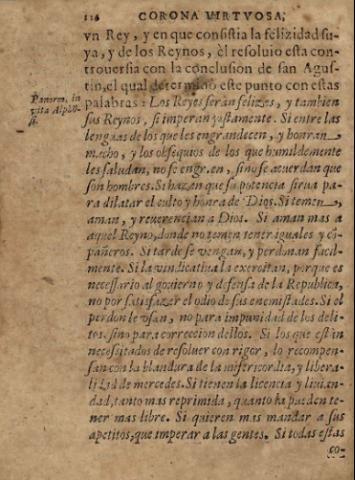 116 CORONA VIRTVOSA,
vn Rey, y en que consistia la felizidad su-
ya, y de los Reynos, èl resoluio esta con-
trouersia con la conclusion de san Agus-
tin, el qual determinò este punto con estas
palabras: Los Reyes seràn felizes, y tambien
Panorm. in
vita Alphõ-
sus Reynos, si imperan justamente. Si entre las
lenguas de los que les engrandecen, y honran
mucho, y los obsequios de los que humildemente
les saludan, no se engrẽn, sino se acuerdan que
son hombres. Si hazen que su potencia sirua pa-
ra dilatar el culto y honra de Dios. Si temen,
aman, y reuerencian a Dios. Si aman mas a
aquel Reyno, donde no temen tener iguales y cõ-
pañeros. Si tarde se vengan, y perdonan facil-
mente. Si la vindicatiua la exercitan, porque es
necessario al gouierno y defensa de la Republica,
no por satisfazer el odio de sus enemistades. Si el
perdon le vsan, no para impunidad de los deli-
tos, sino para correccion dellos. Si los que estàn
necessitados de resoluer con rigor, lo recompen-
san con la blandura de la misericordia, y libera-
lidad de mercedes. Si tienen la licencia y liuian-
dad, tanto mas reprimida, quanto la pueden te-
ner mas libre. Si quieren mas mandar a sus
apetitos, que imperar a las gentes. Si todas estas
co-